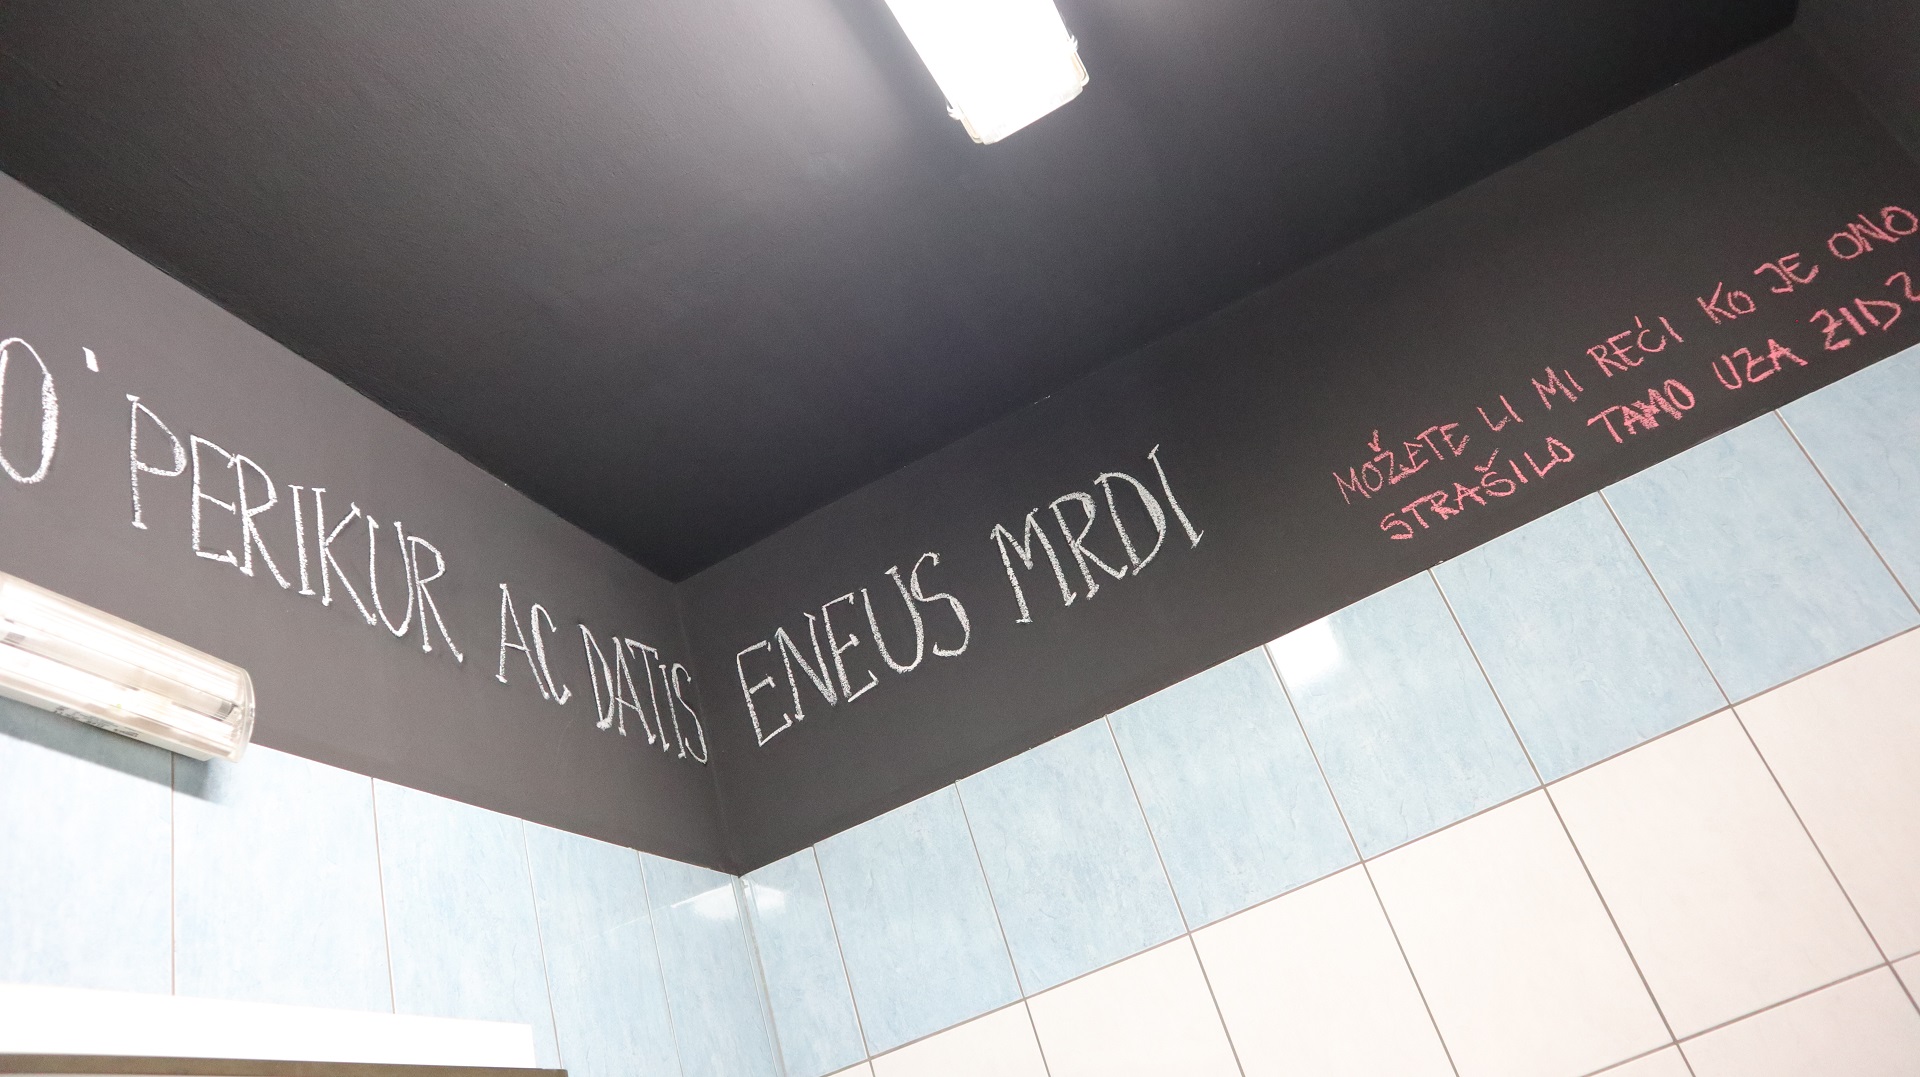 O' PERIKUR AC DATIS ENEUS MRDI
MOŽETE LI MI REĆI KO JE ONO
STRAŠILO TAMO UZA ZID?